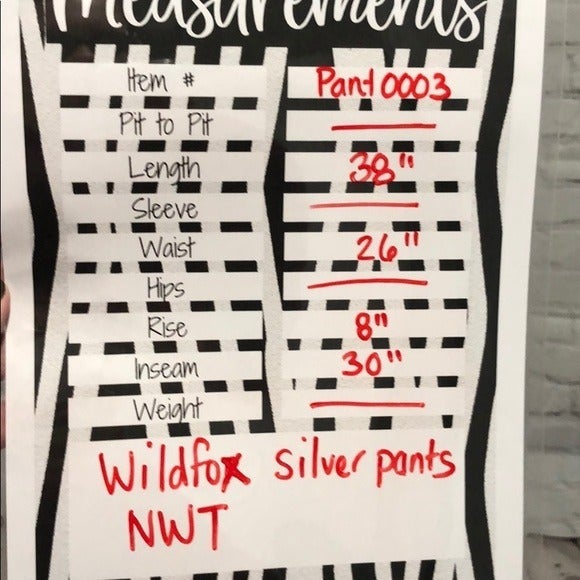 Measurements
Item # Pant0003
Pit to Pit
Length 38"
Sleeve
Waist 26"
Hips
Rise 8"
Inseam 30"
Weight
Wildfox silver pants
NWT